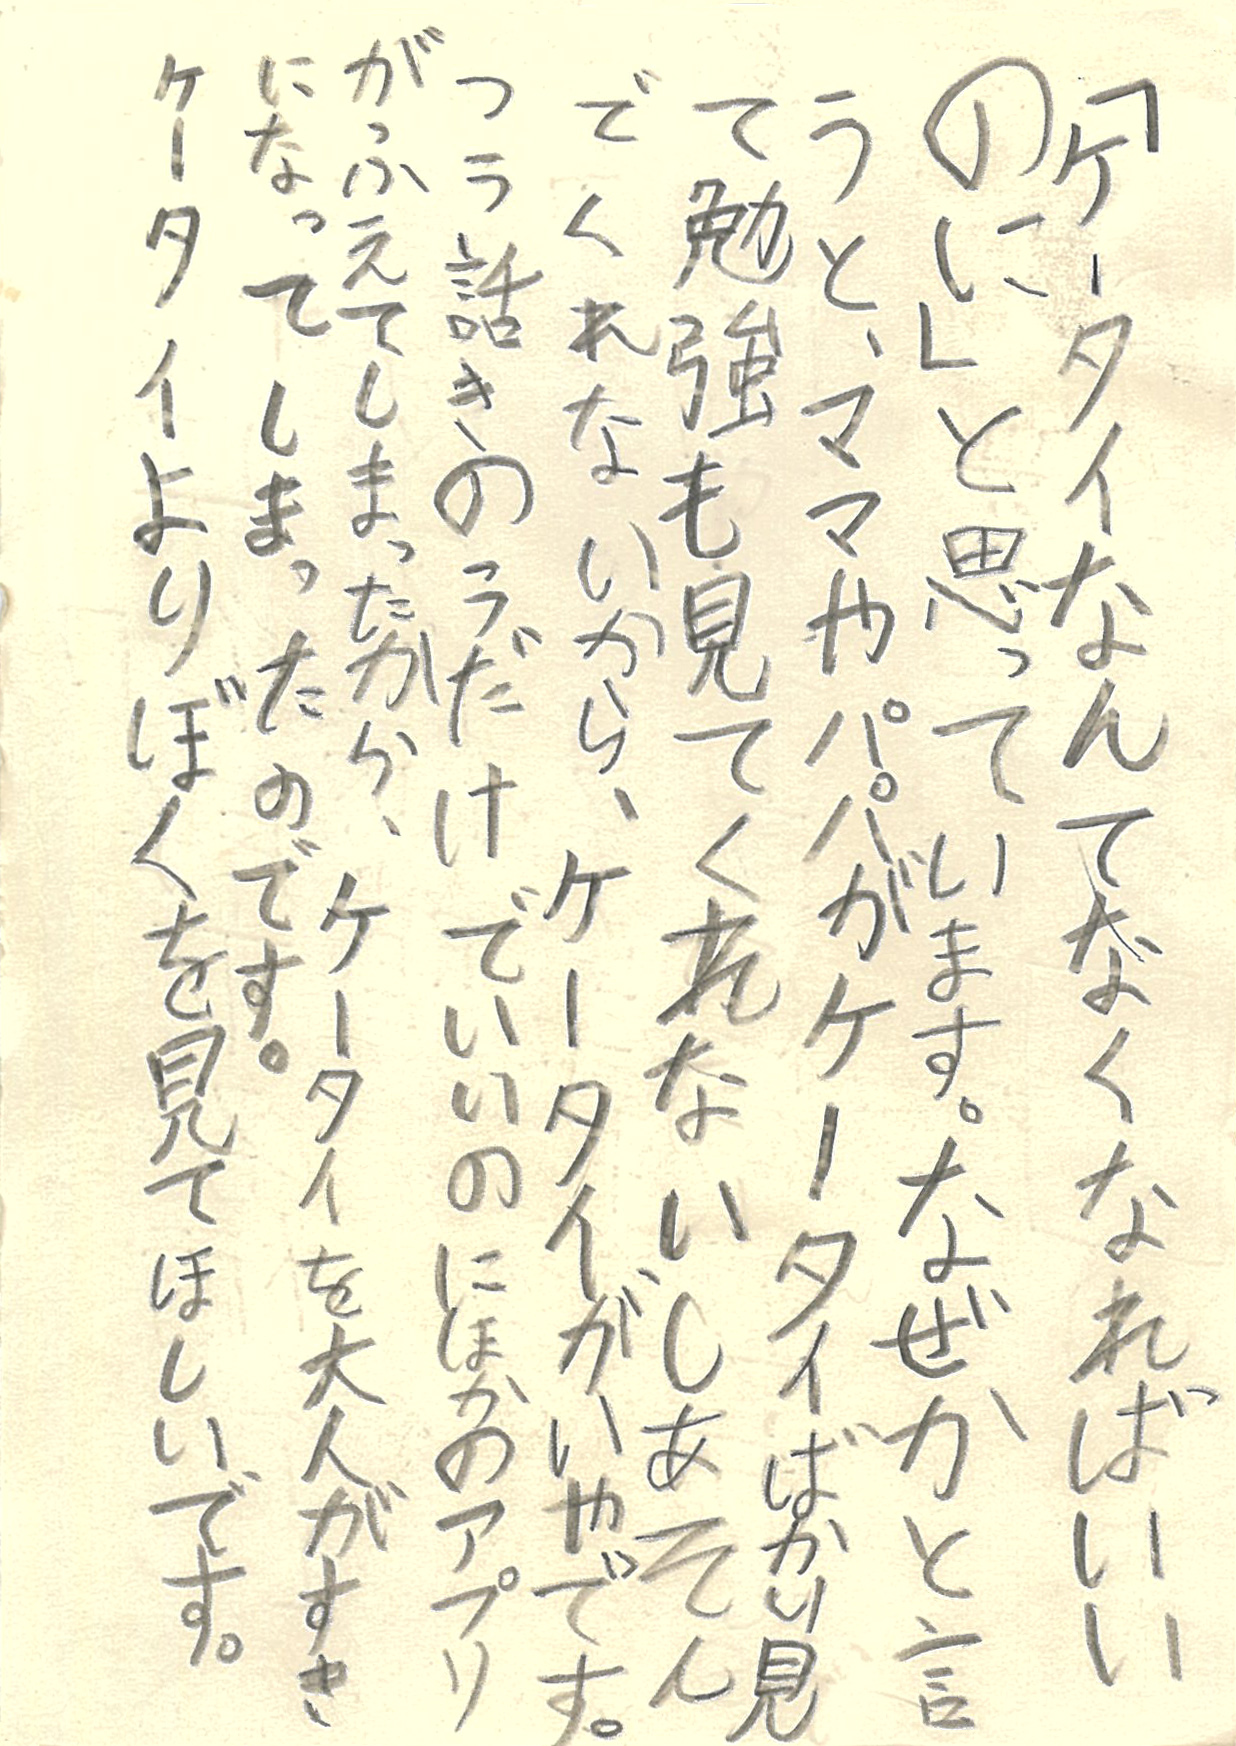 「ケータイなんてなくなればいい
のに」と思っています。なぜかと言
うと、ママやパパがケータイばかり見
て勉強も見てくれないしあそん
でくれないから、ケータイがいやです。
つう話きのうだけでいいのにほかのアプリ
がふえてしまったから、ケータイを大人がすき
になってしまったのです。
ケータイよりぼくを見てほしいです。